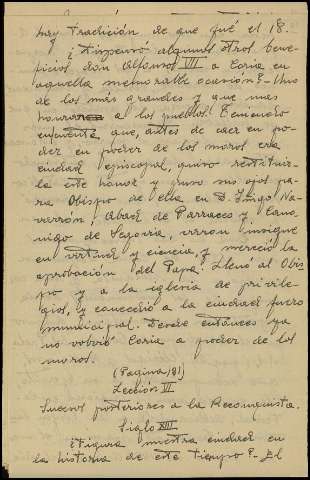 hay Tradición de que fué el 18.
¿Dispensó algunos otros bene-
ficios don Alfonso VII a Coria en
aquella memorable ocasión?- Uno
de los más grandes y que mas
honraron a los pueblos! Teniendo
en cuenta que, antes de caer en po-
der en poder de los moros era
ciudad episcopal, quiso restituir-
la este honor y puso sus ojos pa-
ra Obispo de ella en D. Iñigo Na-
varrón, Abad de Parraces y Canó-
nigo de Segovia, varon insigne
en virtud y ciencia, y mereció la
aprobación del Papa. Llenó al Obis-
po y a la iglesia de privile-
gios, y concedió a la ciudad fuero
municipal. Desde entonces ya
no volvió Coria a poder de los
moros.
(Pagina 181)
Lección VI
Sucesos posteriores a la Reconquista.
Siglo XIII
¿Figura nuestra ciudad en
la historia de este tiempo?- El